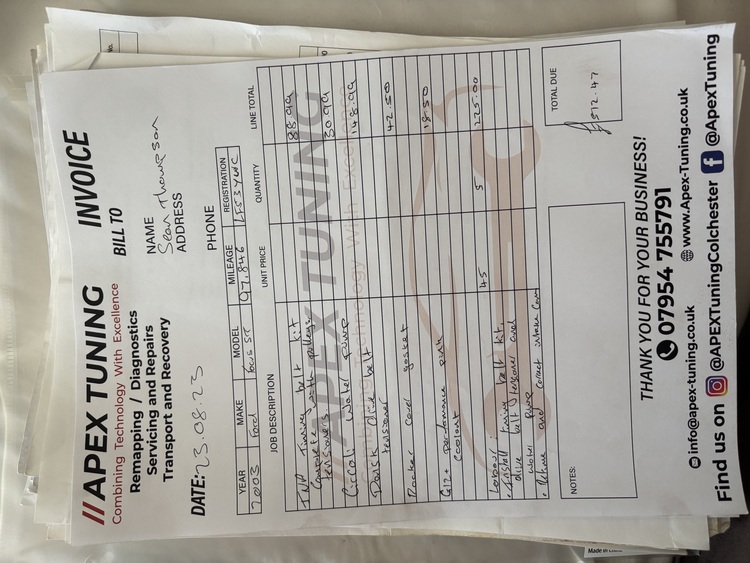 //APEX TUNING
Combining Technology With Excellence
Remapping / Diagnostics
Servicing and Repairs
Transport and Recovery
INVOICE
BILL TO
NAME
Sean Thompson
ADDRESS
PHONE
DATE: 23.08.23
YEAR MAKE MODEL MILEAGE REGISTRATION
2003 Ford Focus ST 97,846
JOB DESCRIPTION UNIT PRICE QUANTITY LINE TOTAL
Timing belt kit 88.99
Complete with pulleys
tensioners 30.99
water pump 148.99
drive belt
tensioner 42.50
Rocker cover gasket
18.50
G12+ Performance pink
Coolant
Labour: 45 5 225.00
• Install timing belt kit,
drive belt, tensioner and
water pump
• Retime and correct intake Cam
//APEX TUNING
Combining Technology With Excellence
NOTES:
TOTAL DUE
£512.47
THANK YOU FOR YOUR BUSINESS!
07954 755791
info@apex-tuning.co.uk www.Apex-Tuning.co.uk
Find us on @APEXTuningColchester @ApexTuning